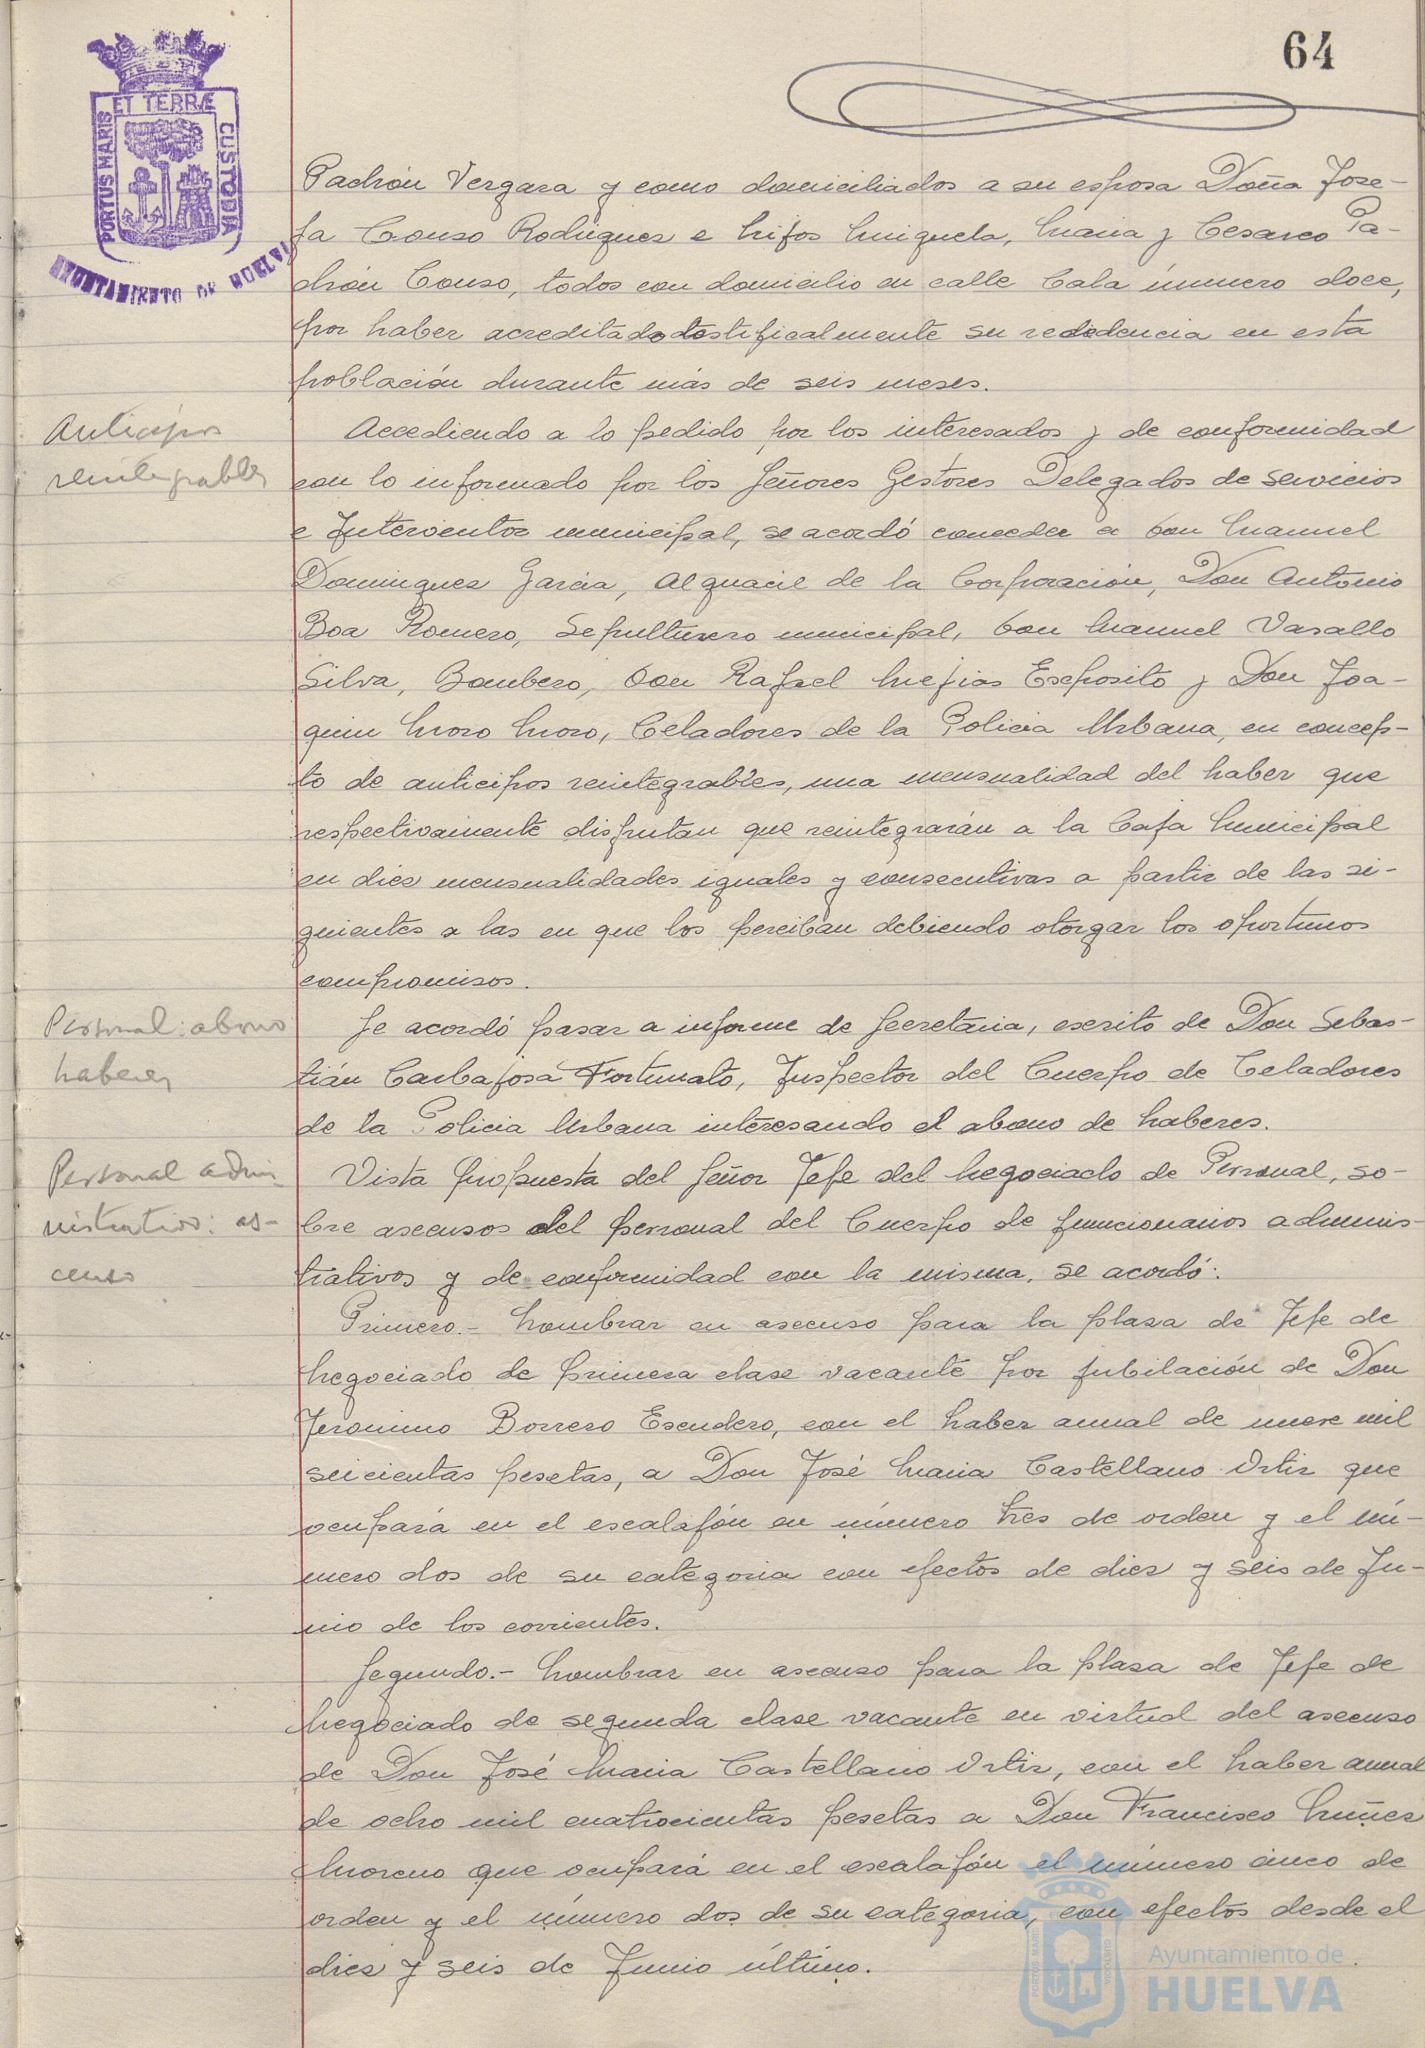 64
PORTUS MARIS ET TERRÆ CUSTODIA
AYUNTAMIENTO DE HUELVA
Padrón Vergara y como domiciliados a su esposa Doña Jose-
fa Couso Rodriguez e hijos Miguela, Maria y Cesareo Pa-
drón Couso, todos con domicilio en calle Cala número doce,
por haber acreditado testificalmente su residencia en esta
población durante más de seis meses.
Anticipos
reintegrables
Accediendo a lo pedido por los interesados y de conformidad
con lo informado por los Señores Gestores Delegados de servicios
e Interventor municipal, se acordó conceder a Don Manuel
Dominguez Garcia, Alguacil de la Corporación, Don Antonio
Boa Romero, Sepulturero municipal, Don Manuel Vasallo
Silva, Bombero, Don Rafael Mejias Exposito y Don Joa-
quin Moro Moro, Celadores de la Policia Urbana, en concep-
to de anticipos reintegrables, una mensualidad del haber que
respectivamente disfrutan que reintegrarán a la Caja Municipal
en diez mensualidades iguales y consecutivas a partir de las si-
guientes a las en que los perciban debiendo otorgar los oportunos
compromisos.
Personal: abono
haberes
Se acordó pasar a informe de Secretaria, escrito de Don Sebas-
tián Carbajosa Fortunato, Inspector del Cuerpo de Celadores
de la Policia Urbana interesando el abono de haberes.
Personal admi-
nistrativo: as-
censo
Vista propuesta del Señor Jefe del Negociado de Personal, so-
bre ascensos del personal del Cuerpo de funcionarios adminis-
trativos y de conformidad con la misma, se acordó:
Primero.- Nombrar en ascenso para la plaza de Jefe de
Negociado de primera clase vacante por jubilación de Don
Jeronimo Borrero Escudero, con el haber anual de nueve mil
seicientas pesetas, a Don José Maria Castellano Ortiz que
ocupará en el escalafón en número tres de orden y el nú-
mero dos de su categoria con efectos de diez y seis de Ju-
nio de los corrientes.
Segundo.- Nombrar en ascenso para la plaza de Jefe de
Negociado de segunda clase vacante en virtud del ascenso
de Don José Maria Castellano Ortiz, con el haber anual
de ocho mil cuatrocientas pesetas a Don Francisco Nuñez
Moreno que ocupará en el escalafón el número cinco de
orden y el número dos de su categoria, con efectos desde el
diez y seis de Junio último.
Ayuntamiento de
HUELVA